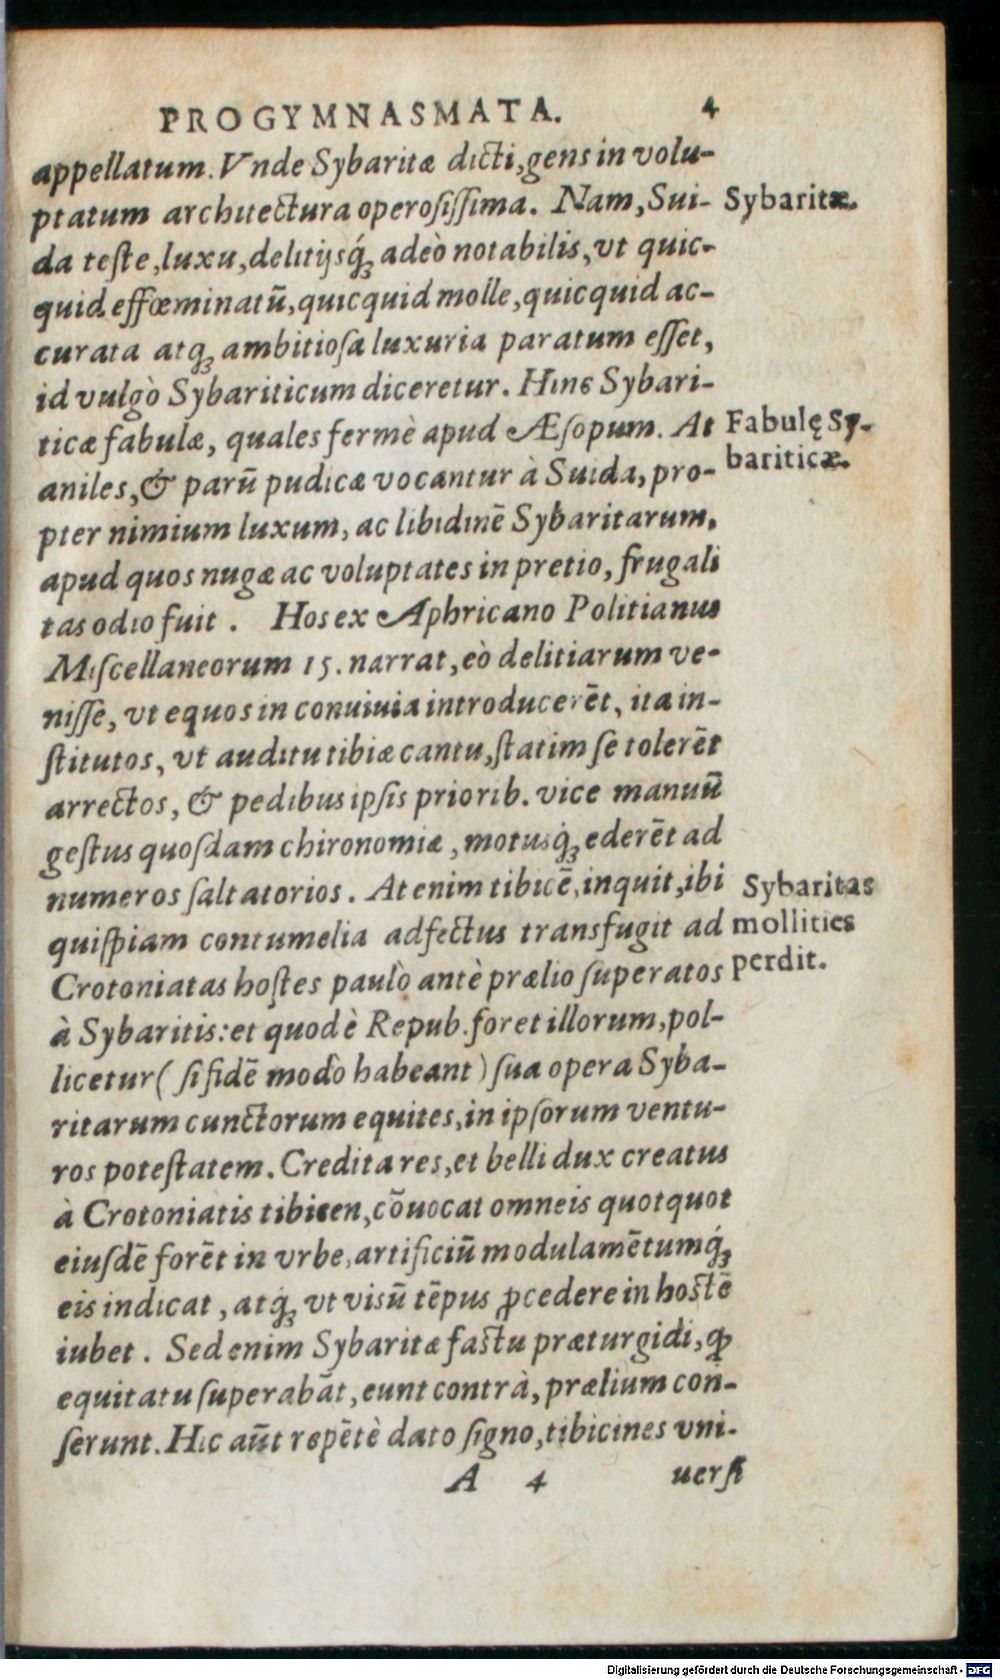 PROGYMNASMATA. 4
appellatum. Vnde Sybaritæ dicti, gens in volu-
ptatum architectura operosissima. Nam, Sui-
Sybaritæ.
da teste, luxu, delitijsq́ꝫ adeò notabilis, vt quic-
quid effœminatū, quicquid molle, quicquid ac-
curata atqꝫ ambitiosa luxuria paratum esset,
id vulgò Sybariticum diceretur. Hinc Sybari-
ticæ fabulæ, quales fermè apud Æsopum. At
Fabulę Sy-
bariticæ.
aniles, & parū pudicæ vocantur à Suida, pro-
pter nimium luxum, ac libidinē Sybaritarum,
apud quos nugæ ac voluptates in pretio, frugali
tas odio fuit. Hos ex Aphricano Politianus
Miscellaneorum 15. narrat, eò delitiarum ve-
nisse, vt equos in conuiuia introducerēt, ita in-
stitutos, vt auditu tibiæ cantu, statim se tolerēt
arrectos, & pedibus ipsis priorib. vice manuū
gestus quosdam chironomiæ, motusq́ꝫ ederēt ad
numeros saltatorios. At enim tibicē, inquit, ibi
Sybaritas
mollities
perdit.
quispiam contumelia adfectus transfugit ad
Crotoniatas hostes paulò antè prælio superatos
à Sybaritis: et quod è Repub. foret illorum, pol-
licetur ( si fidē modò habeant ) sua opera Syba-
ritarum cunctorum equites, in ipsorum ventu-
ros potestatem. Credita res, et belli dux creatus
à Crotoniatis tibicen, cōuocat omneis quotquot
eiusdē forēt in vrbe, artificiū modulamētumq́ꝫ
eis indicat, atq́ꝫ vt visū tēpus ꝓcedere in hostē
iubet. Sed enim Sybaritæ fastu præturgidi, ꝙ
equitatu superabāt, eunt contrà, prælium con-
serunt. Hic aūt repētè dato signo, tibicines vni-
A 4 uersi
Digitalisierung gefördert durch die Deutsche Forschungsgemeinschaft - DFG